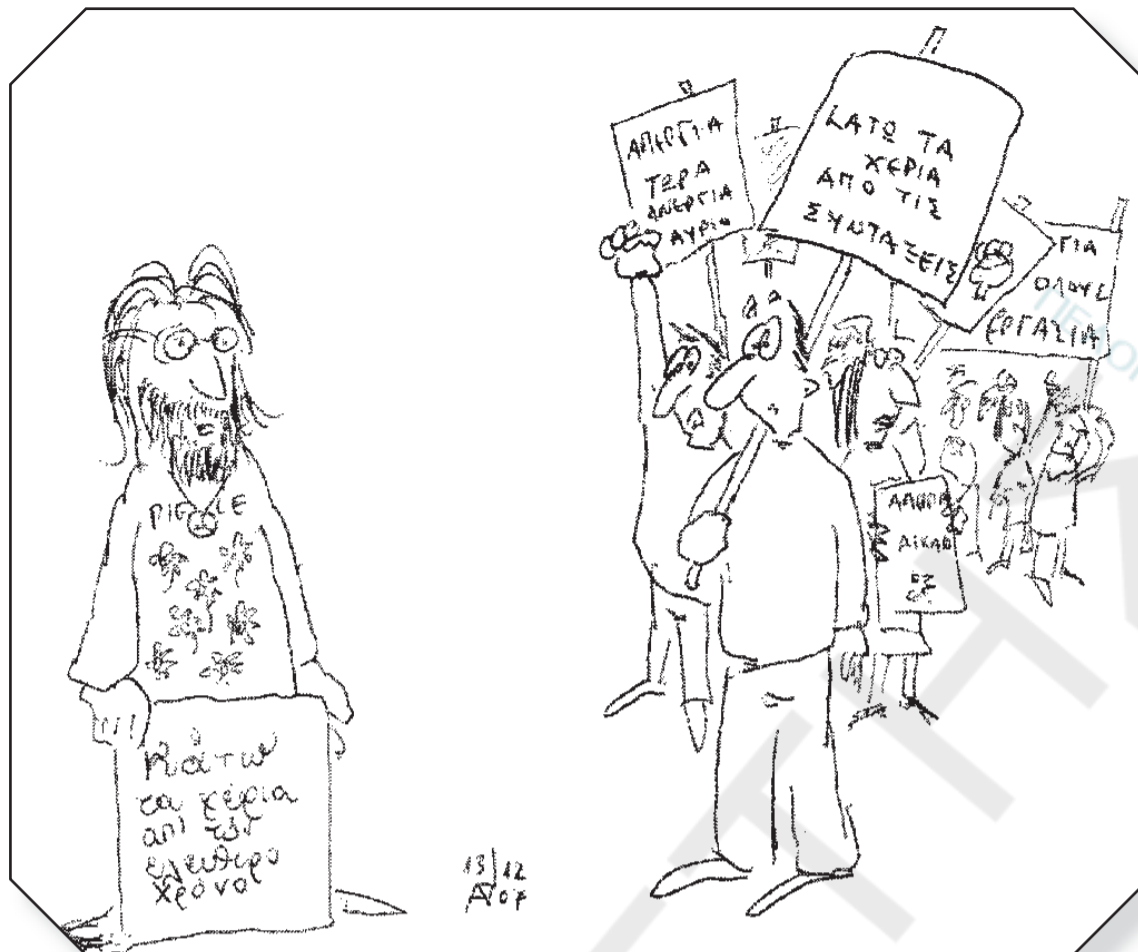 ΑΠΕΡΓΙΑ
ΤΩΡΑ
ΑΝΕΡΓΙΑ
ΑΥΡΙΟ
ΚΑΤΩ ΤΑ
ΧΕΡΙΑ
ΑΠΟ ΤΙΣ
ΣΥΝΤΑΞΕΙΣ
ΓΙΑ
ΟΛΟΥΣ
ΕΡΓΑΣΙΑ
Κάτω
τα χέρια
απ' τον
ελεύθερο
χρόνο
13/12
07